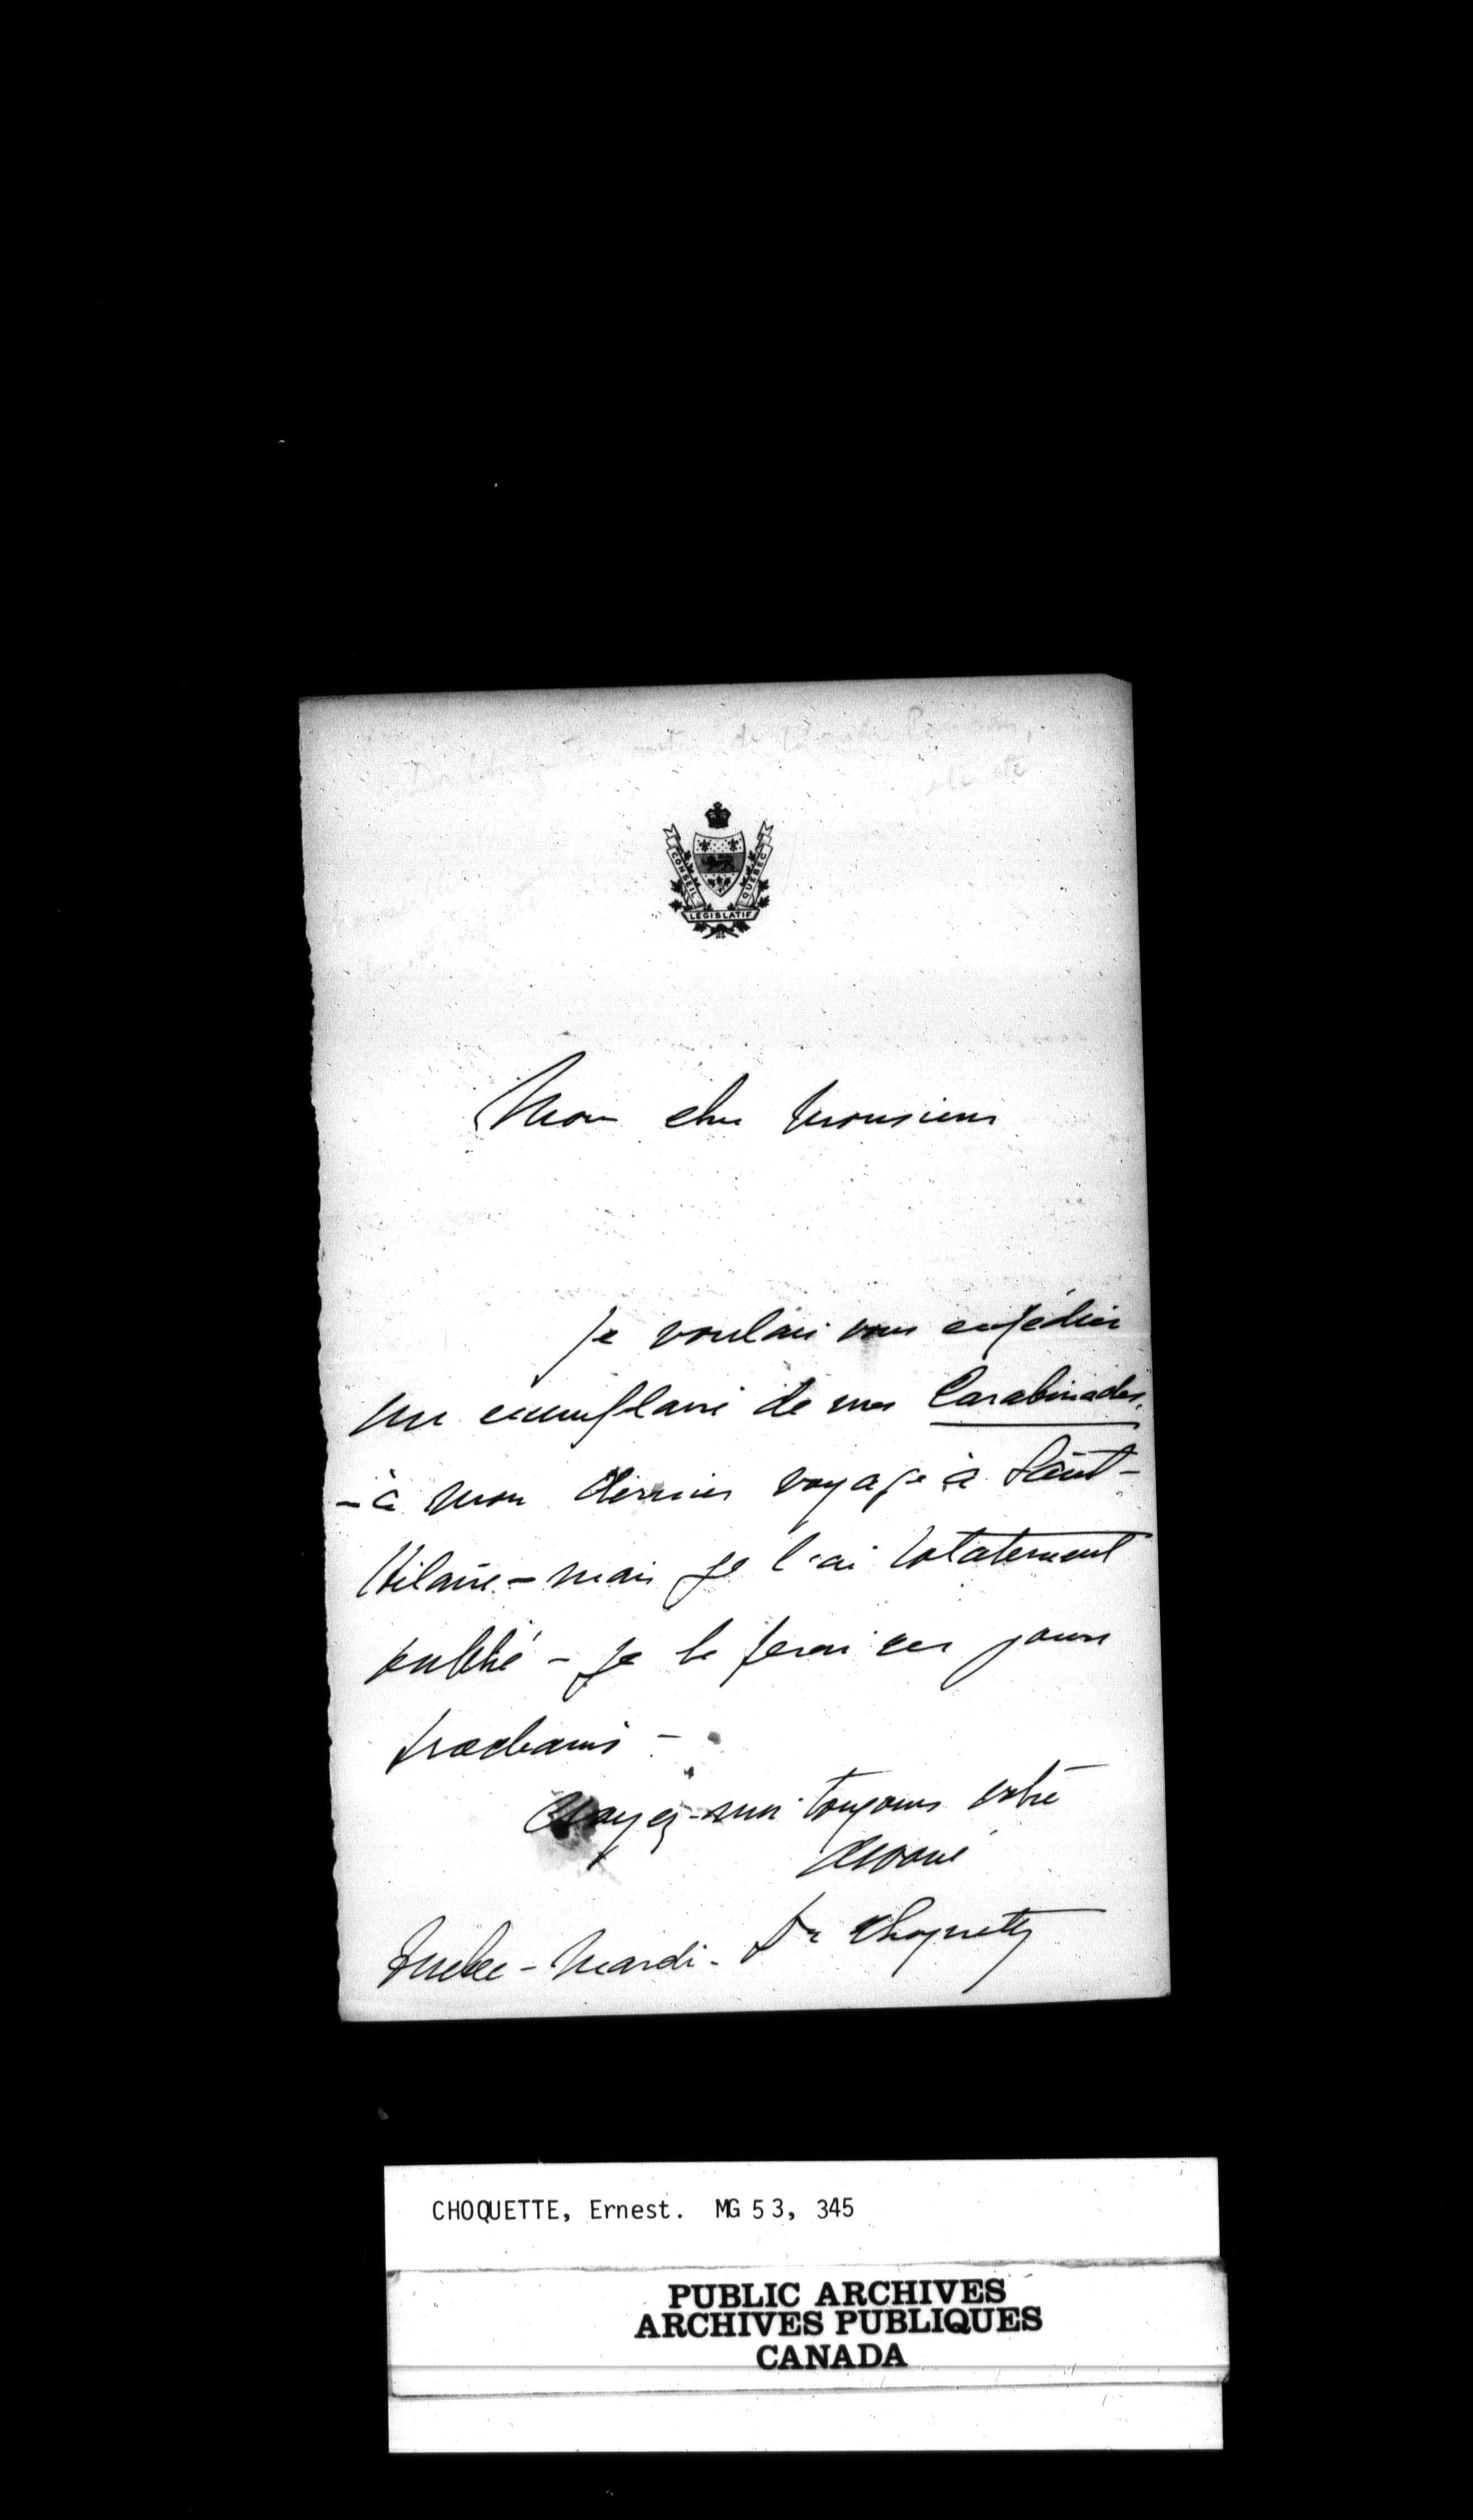 CONSEIL LÉGISLATIF QUÉBEC
Mon cher Monsieur
Je voulais vous expédier
un exemplaire de mes Carabinades.
- à mon dernier voyage à Saint-
Hilaire - mais je l'ai totalement
oublié - Je le ferai ces jours
prochains -
Croyez-moi toujours votre
dévoué
Dr Choquette
Québec - Mardi -
CHOQUETTE, Ernest. MG 53, 345
PUBLIC ARCHIVES
ARCHIVES PUBLIQUES
CANADA